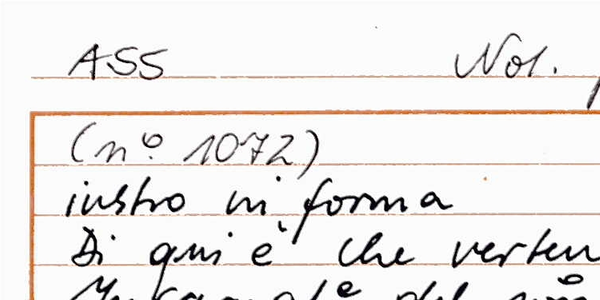 ASS Not.
(nº 1072)
iustro in forma
Di qui è che verten